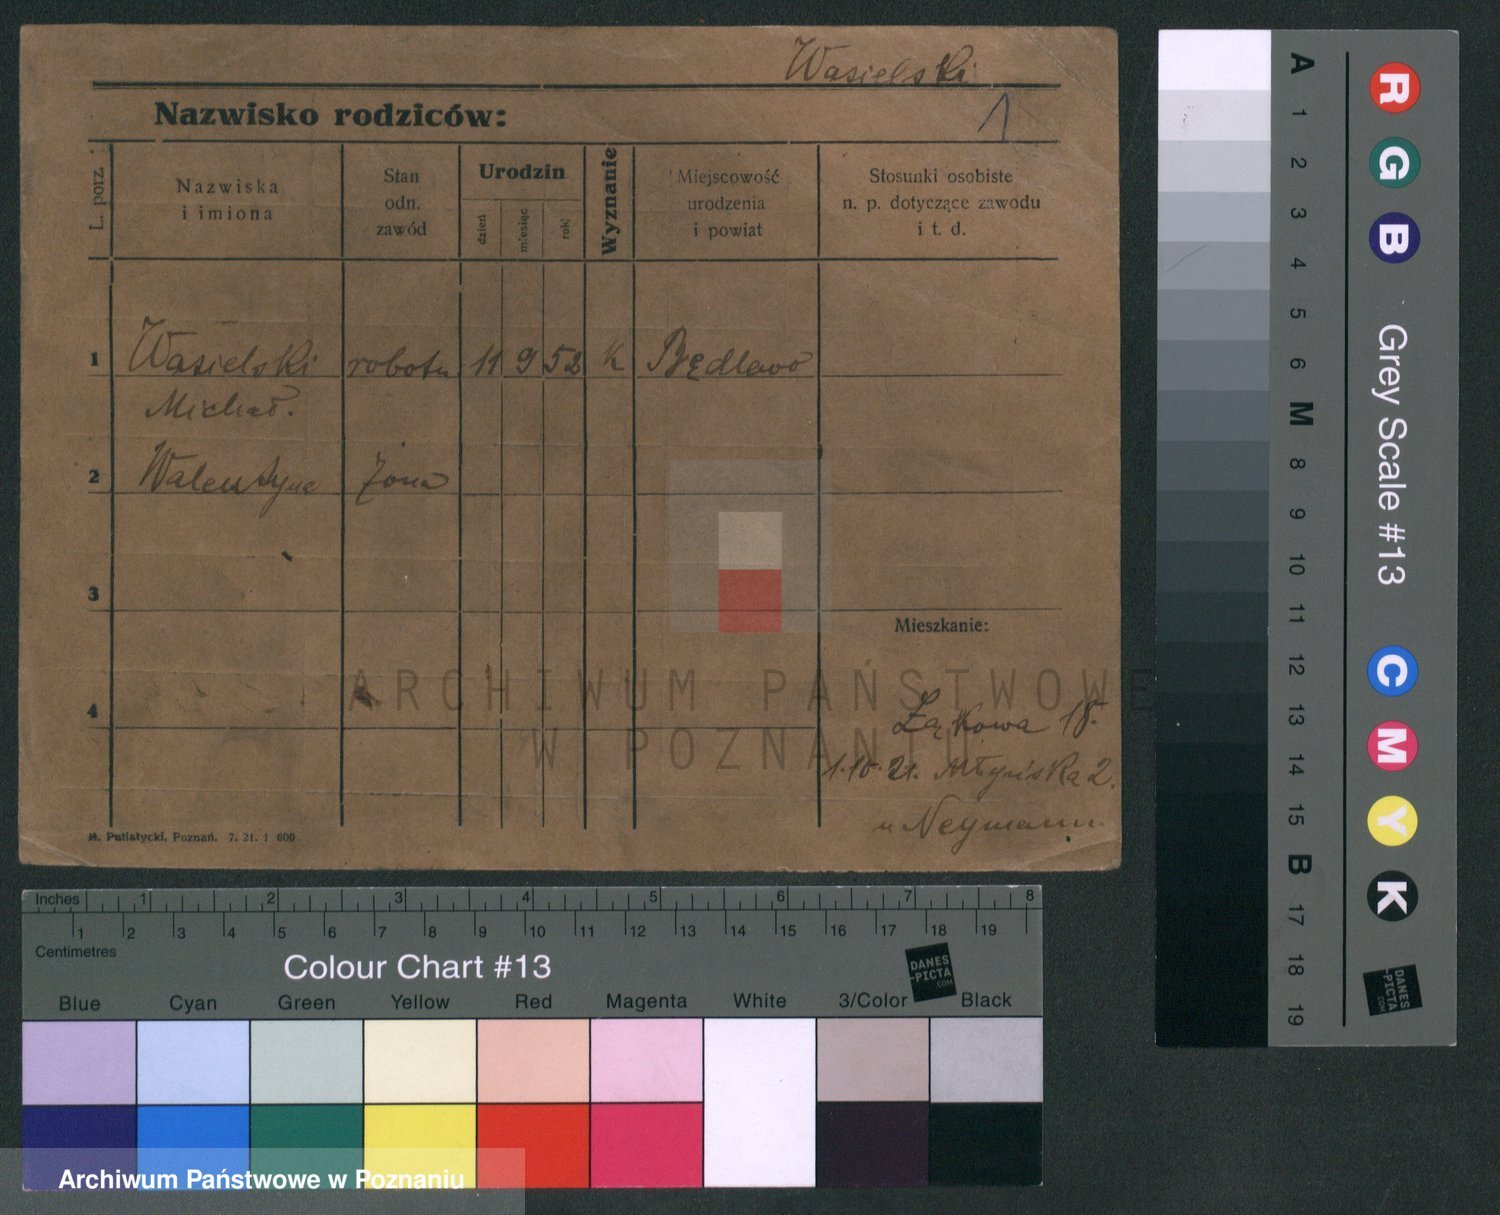 Wasielski
Nazwisko rodziców:
1
L. porz.
Nazwiska
i imiona
Stan
odn.
zawód
Urodzin
dzień
miesiąc
rok
Wyznanie
Miejscowość
urodzenia
i powiat
Stosunki osobiste
n. p. dotyczące zawodu
i t. d.
1 Wasielski robotn 11 9 52 K Będlewo
Michał.
2 Walentyna żona
3
Mieszkanie:
4
Łąkowa 18.
1.10.21. Młyńska 2.
u Neymann.
M. Putiatycki, Poznań. 7. 21. 1 000
ARCHIWUM PAŃSTWOWE
W POZNANIU
Inches 1 2 3 4 5 6 7 8
1 2 3 4 5 6 7 8 9 10 11 12 13 14 15 16 17 18 19
Centimetres
Colour Chart #13
DANES
-PICTA
.COM
Blue Cyan Green Yellow Red Magenta White 3/Color Black
Archiwum Państwowe w Poznaniu
A 1 2 3 4 5 6 M 8 9 10 11 12 13 14 15 B 17 18 19
R G B
Grey Scale #13
C M Y K
DANES
-PICTA
.COM